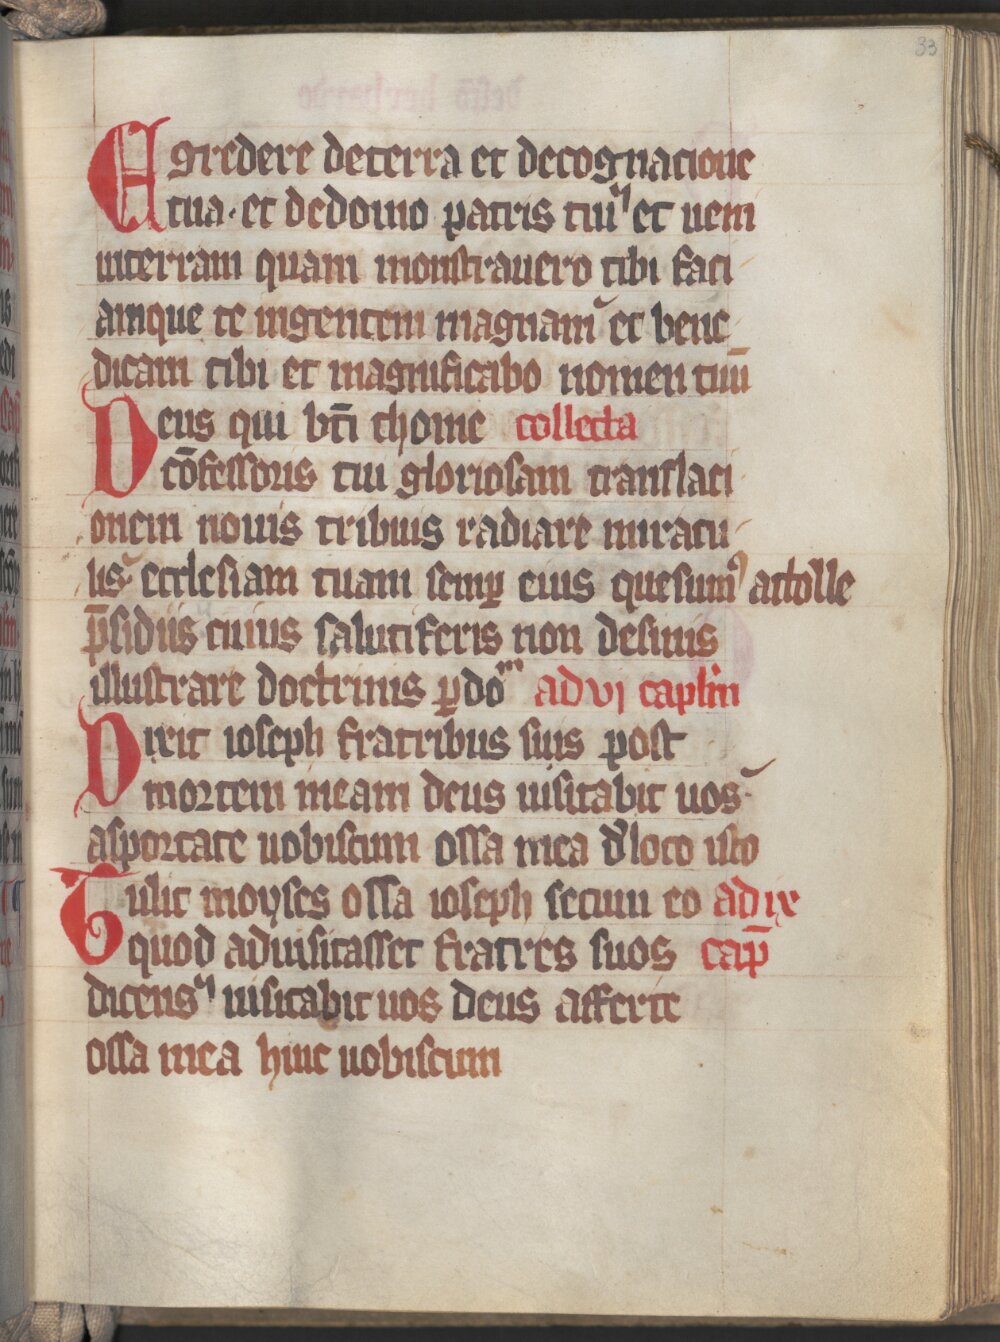 33
Egredere deterra et decognacione
tua. et dedomo patris tui et ueni
interram quam monstrauero tibi faci
amque te ingentem magnam et bene
dicam tibi et magnificabo nomen tuū
Deus qui bt̄i thome collecta
cōfessoris tui gloriosam translaci
onem nouis tribuis radiare miracu
lis ecclesiam tuam semꝑ eius quesum9 attolle
p̄sidiis cuius salutiferis non desinis
illustrare doctrinis ꝑ do᷒m ad vi caplm̄
Dixit ioseph fratribus suis post
mortem meam deus uisitabit uos
asportate uobiscum ossa mea d'loco isto
Tulit moyses ossa ioseph secum eo ad ix
quod aduisitasset fratres suos cap̄
dicens uisitabit uos deus afferte
ossa mea hinc uobiscum